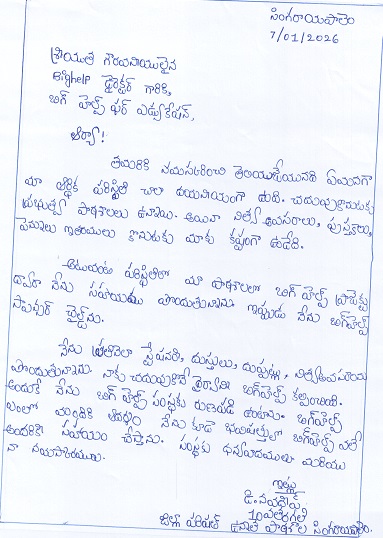 సింగరాయపాలెం
7/01/2026
శ్రీయుత గౌరవనీయులైన
Bighelp డైరెక్టర్ గారికి,
బిగ్ హెల్ప్ ఫర్ ఎడ్యుకేషన్,
ఆర్యా!
తమరికి నమస్కరించి తెలియజేయునది ఏమనగా
మా ఆర్థిక పరిస్థితి చాలా దయనీయంగా ఉంది. చదువుకొనుటకు
ప్రభుత్వ పాఠశాలలు ఉన్నాయి. అయినా నిత్యావసరాలు, పుస్తకాలు,
పెన్నులు ఇతరములు కొనుటకు మాకు కష్టంగా ఉండేది.
అటువంటి పరిస్థితిలో మా పాఠశాలలో బిగ్ హెల్ప్ ప్రాజెక్టు
ద్వారా నేను సహాయము పొందుతున్నాను. ఇప్పుడు నేను బిగ్‌హెల్ప్
స్పాన్సర్ చైల్డ్‌ను.
నేను ప్రతినెలా స్టేషనరీ, దుస్తులు, దుప్పట్లు, నిత్యావసరాలను
పొందుతున్నాను. నాకు చదువుకునే ధైర్యాన్ని బిగ్‌హెల్ప్ కల్పించింది.
అందుకే నేను బిగ్ హెల్ప్ సంస్థకు రుణపడి ఉంటాను. బిగ్‌హెల్ప్
నేను కూడా భవిష్యత్తులో బిగ్‌హెల్ప్ వలే
అందరికి సహాయం చేస్తాను. సంస్థకు ధన్యవాదములు మరియు
నా నమస్కారములు.
ఇట్లు
10వతరగతి
జిల్లా పరిషత్ ఉన్నత పాఠశాల సింగరాయపాలెం.